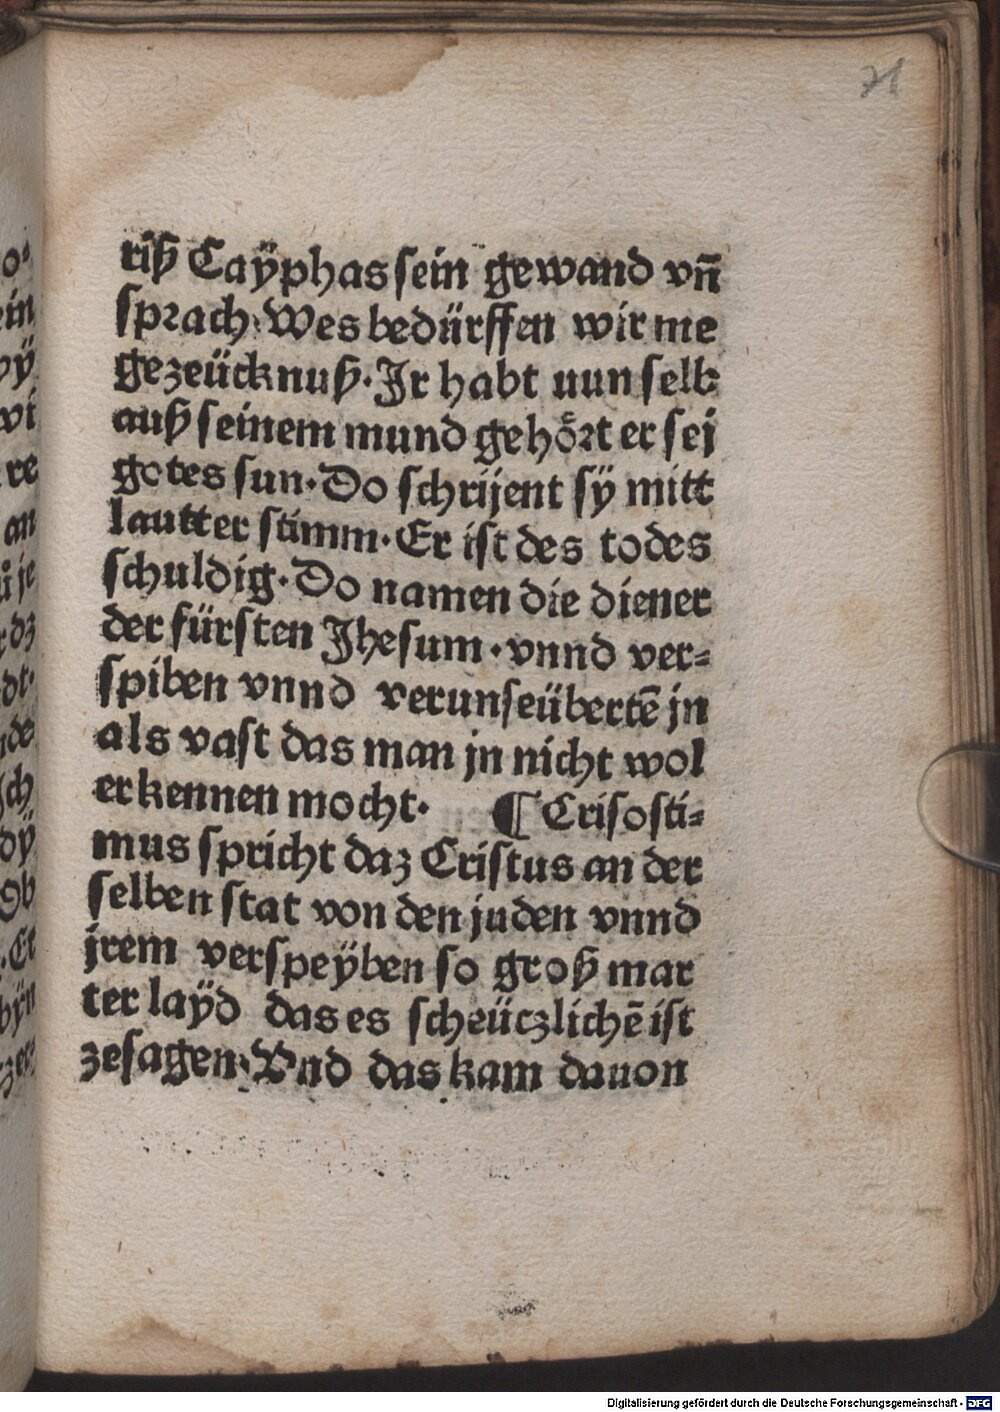 71
riß Caÿphas sein gewand vñ
sprach. Wes bedürffen wir me
gezeücknuß. Jr habt nun selb
auß seinem mund gehoͤrt er sei
gotes sun. Do schrijent sÿ mitt
lautter stimm. Er ist des todes
schuldig. Do namen die diener
der fürsten Jhesum. vnnd ver⸗
spiben vnnd verunseübertē jn
als vast das man jn nicht wol
erkennen mocht. ¶ Crisosti⸗
mus spricht daz Cristus an der
selben stat von den juden vnnd
jrem verspeÿben so groß mar
ter laÿd das es scheüczlichē ist
zesagen. Vnd das kam dauon
Digitalisierung gefördert durch die Deutsche Forschungsgemeinschaft - DFG